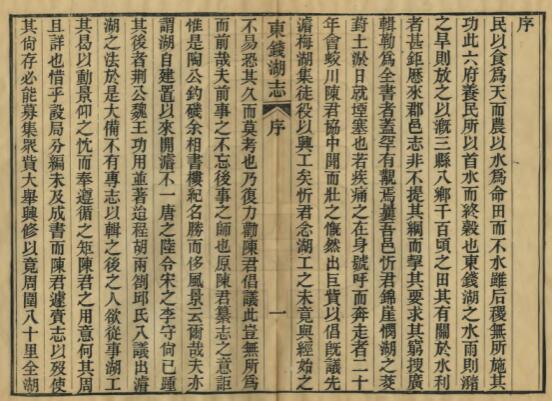 序
民以食爲天而農以水爲命田而不水雖后稷無所施其
功此六府養民所以首水而終穀也東錢湖之水雨則瀦
之旱則放之以漑三縣八鄉千百頃之田其有關於水利
者甚鉅歷來郡邑志非不提其綱而挈其要求其窮搜廣
輯勒爲全書者蓋罕有覯焉曩吾邑忻君錦崖憫湖之茭
葑土淤日就堙塞也若疾痛之在身號呼而奔走者二十
年會蛟川陳君協中聞而壯之慨然出巨貲以倡旣議先
濬梅湖集徒役以興工矣忻君念湖工之未竟與經始之
東錢湖志 序 一
不易恐其久而莫考也乃復力勸陳君倡議此豈無所爲
而前哉夫前事之不忘後事之師也原陳君纂志之意詎
惟是陶公釣磯余相書樓紀名勝而侈風景云爾哉夫亦
謂湖自建置以來開濬不一唐之陸令宋之李守尙已踵
其後者荆公魏王功用並著迨程胡兩劄邱氏八議出濬
湖之法於是大備不有專志以輯之後之人欲從事湖工
其曷以動景仰之忱而奉遵循之矩陳君之用意何其周
且詳也惜乎設局分編未及成書而陳君遽賫志以歿使
其尙存必能募集衆貲大舉興修以竟周圍八十里全湖